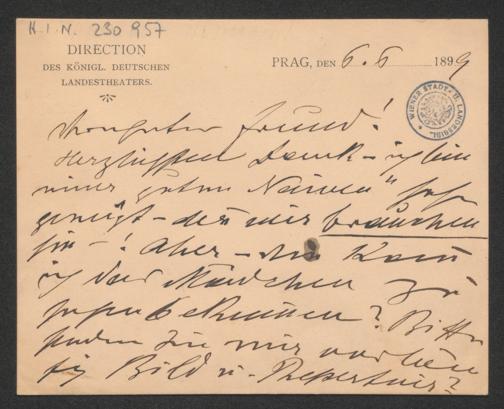 H.I.N. 230957
DIRECTION
DES KÖNIGL. DEUTSCHEN
LANDESTHEATERS.
PRAG, DEN 6.6 1899
WIENER STADT- U. LANDESBIBL.
guter Freund!
Herzlichsten Dank – ich bin
einer guten Naiven" sehr
geneigt – denn wir brauchen
sie –! Aber – wie kann
ich das Mädchen zu
sehen bekommen? Bitte
senden Sie mir
Bild u. Repertoir?